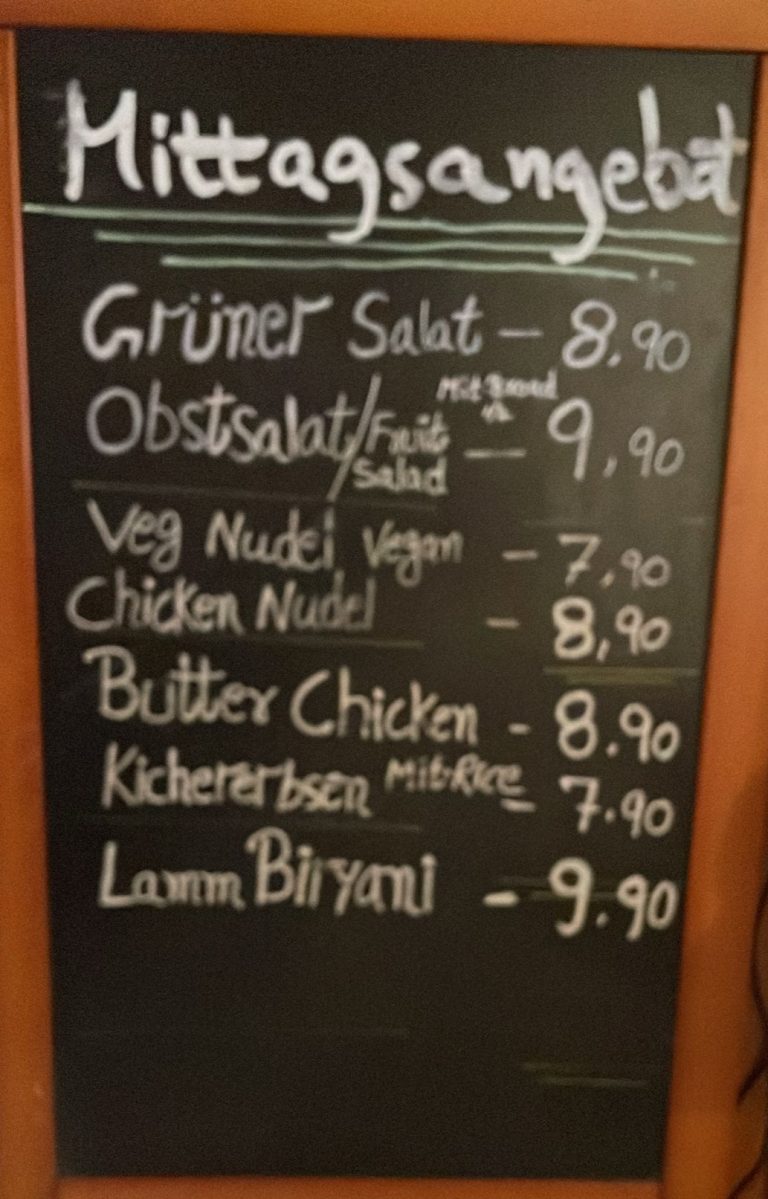 Mittagsangebot
Grüner Salat - 8.90
Obstsalat/Fruit Salad Mit Bread - 9,90
Veg Nudel Vegan - 7,90
Chicken Nudel - 8,90
Butter Chicken - 8.90
Kichererbsen Mit Rice - 7.90
Lamm Biryani - 9.90